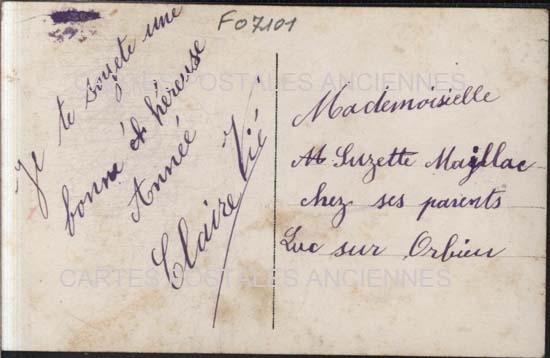 FO7101
Je te soyete une
bonne et héreuse
Année
Claire Vié
Mademoiselle
M Suzette Maillac
chez ses parents
Luc sur Orbieu
CARTES POSTALES ANCIENNES
CARTES POSTALES ANCIENNES